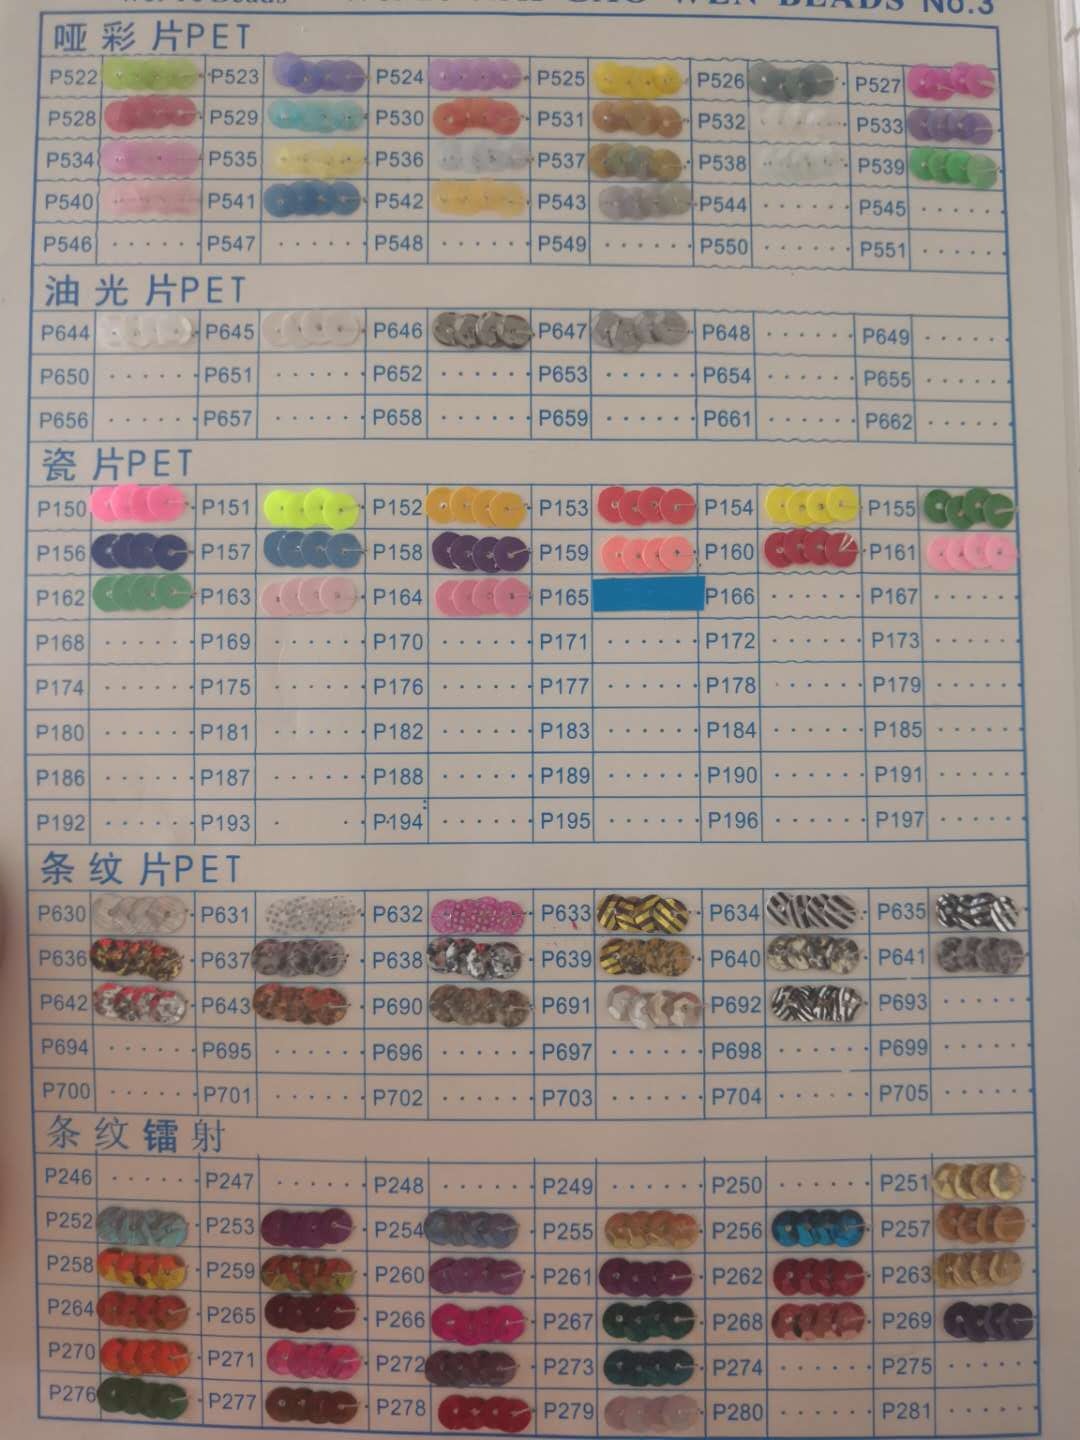 BEADS No.3
哑彩片PET
P522 P523 P524 P525 P526 P527
P528 P529 P530 P531 P532 P533
P534 P535 P536 P537 P538 P539
P540 P541 P542 P543 P544 P545
P546 P547 P548 P549 P550 P551
油光片PET
P644 P645 P646 P647 P648 P649
P650 P651 P652 P653 P654 P655
P656 P657 P658 P659 P661 P662
瓷片PET
P150 P151 P152 P153 P154 P155
P156 P157 P158 P159 P160 P161
P162 P163 P164 P165 P166 P167
P168 P169 P170 P171 P172 P173
P174 P175 P176 P177 P178 P179
P180 P181 P182 P183 P184 P185
P186 P187 P188 P189 P190 P191
P192 P193 P194 P195 P196 P197
条纹片PET
P630 P631 P632 P633 P634 P635
P636 P637 P638 P639 P640 P641
P642 P643 P690 P691 P692 P693
P694 P695 P696 P697 P698 P699
P700 P701 P702 P703 P704 P705
条纹镭射
P246 P247 P248 P249 P250 P251
P252 P253 P254 P255 P256 P257
P258 P259 P260 P261 P262 P263
P264 P265 P266 P267 P268 P269
P270 P271 P272 P273 P274 P275
P276 P277 P278 P279 P280 P281